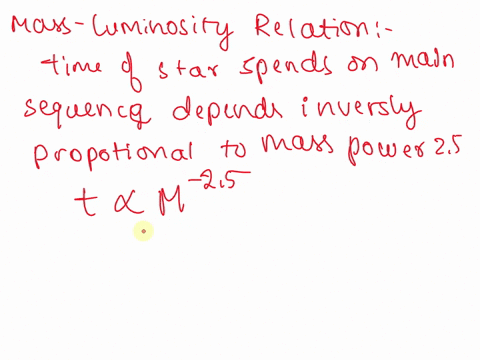 Mass-Luminosity Relation:-
time of star spends on main
sequence depends inversly
propotional to mass power 2.5
t ∝ M^-2.5